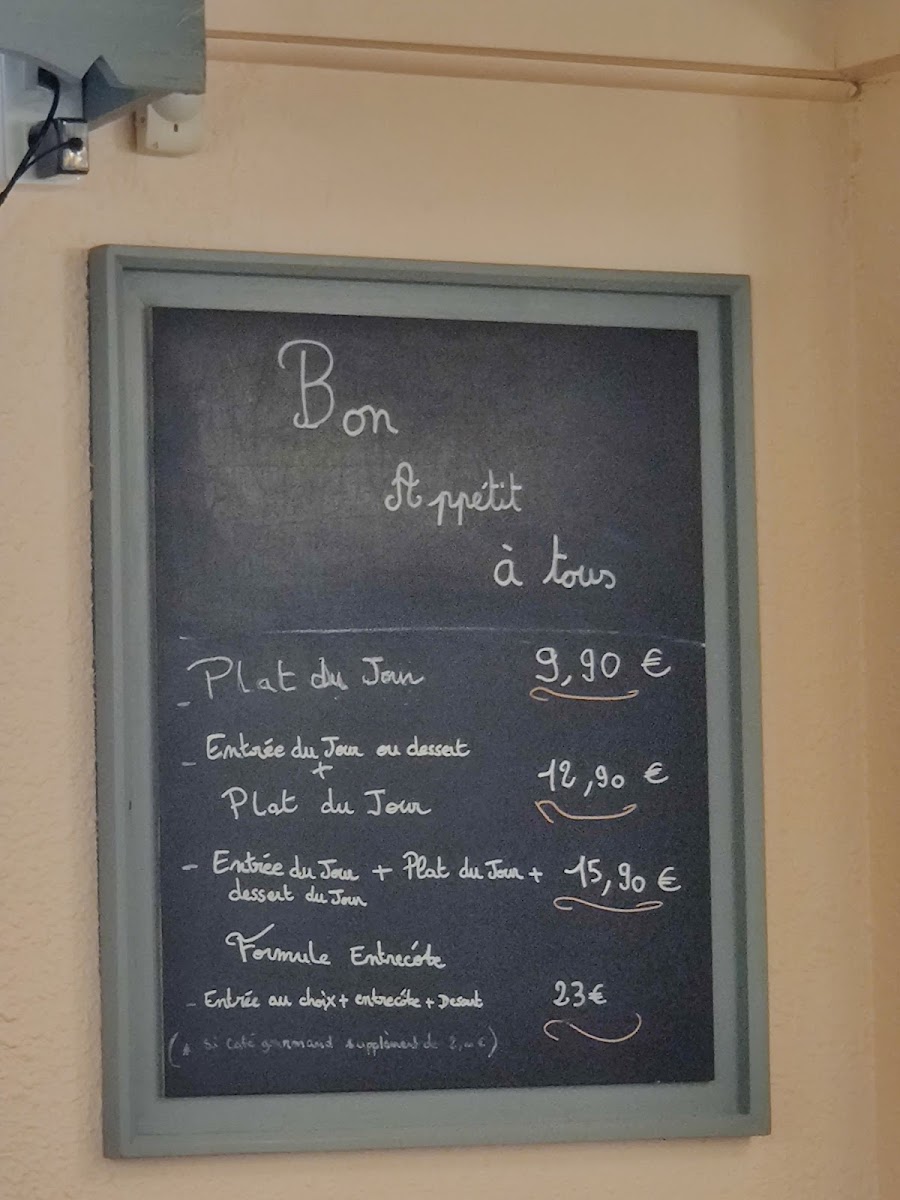 Bon
Appétit
à tous
- Plat du Jour 9,90 €
- Entrée du Jour ou dessert
+
Plat du Jour 12,90 €
- Entrée du Jour + Plat du Jour + 15,90 €
dessert du Jour
Formule Entrecôte
- Entrée au choix + entrecôte + Dessert 23€
(* Si café gourmand supplément de 2,00€)